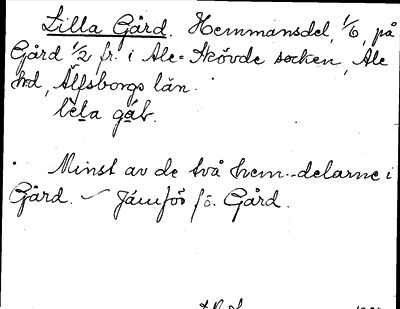 Lilla Gård. Hemmansdel, 1/6, på
Gård 1/2 fr. i Ale-Skövde socken, Ale
hd, Älfsborgs län.
lela gåb.
Minst av de två hem-delarne i
Gård. – Jämför fö. Gård.